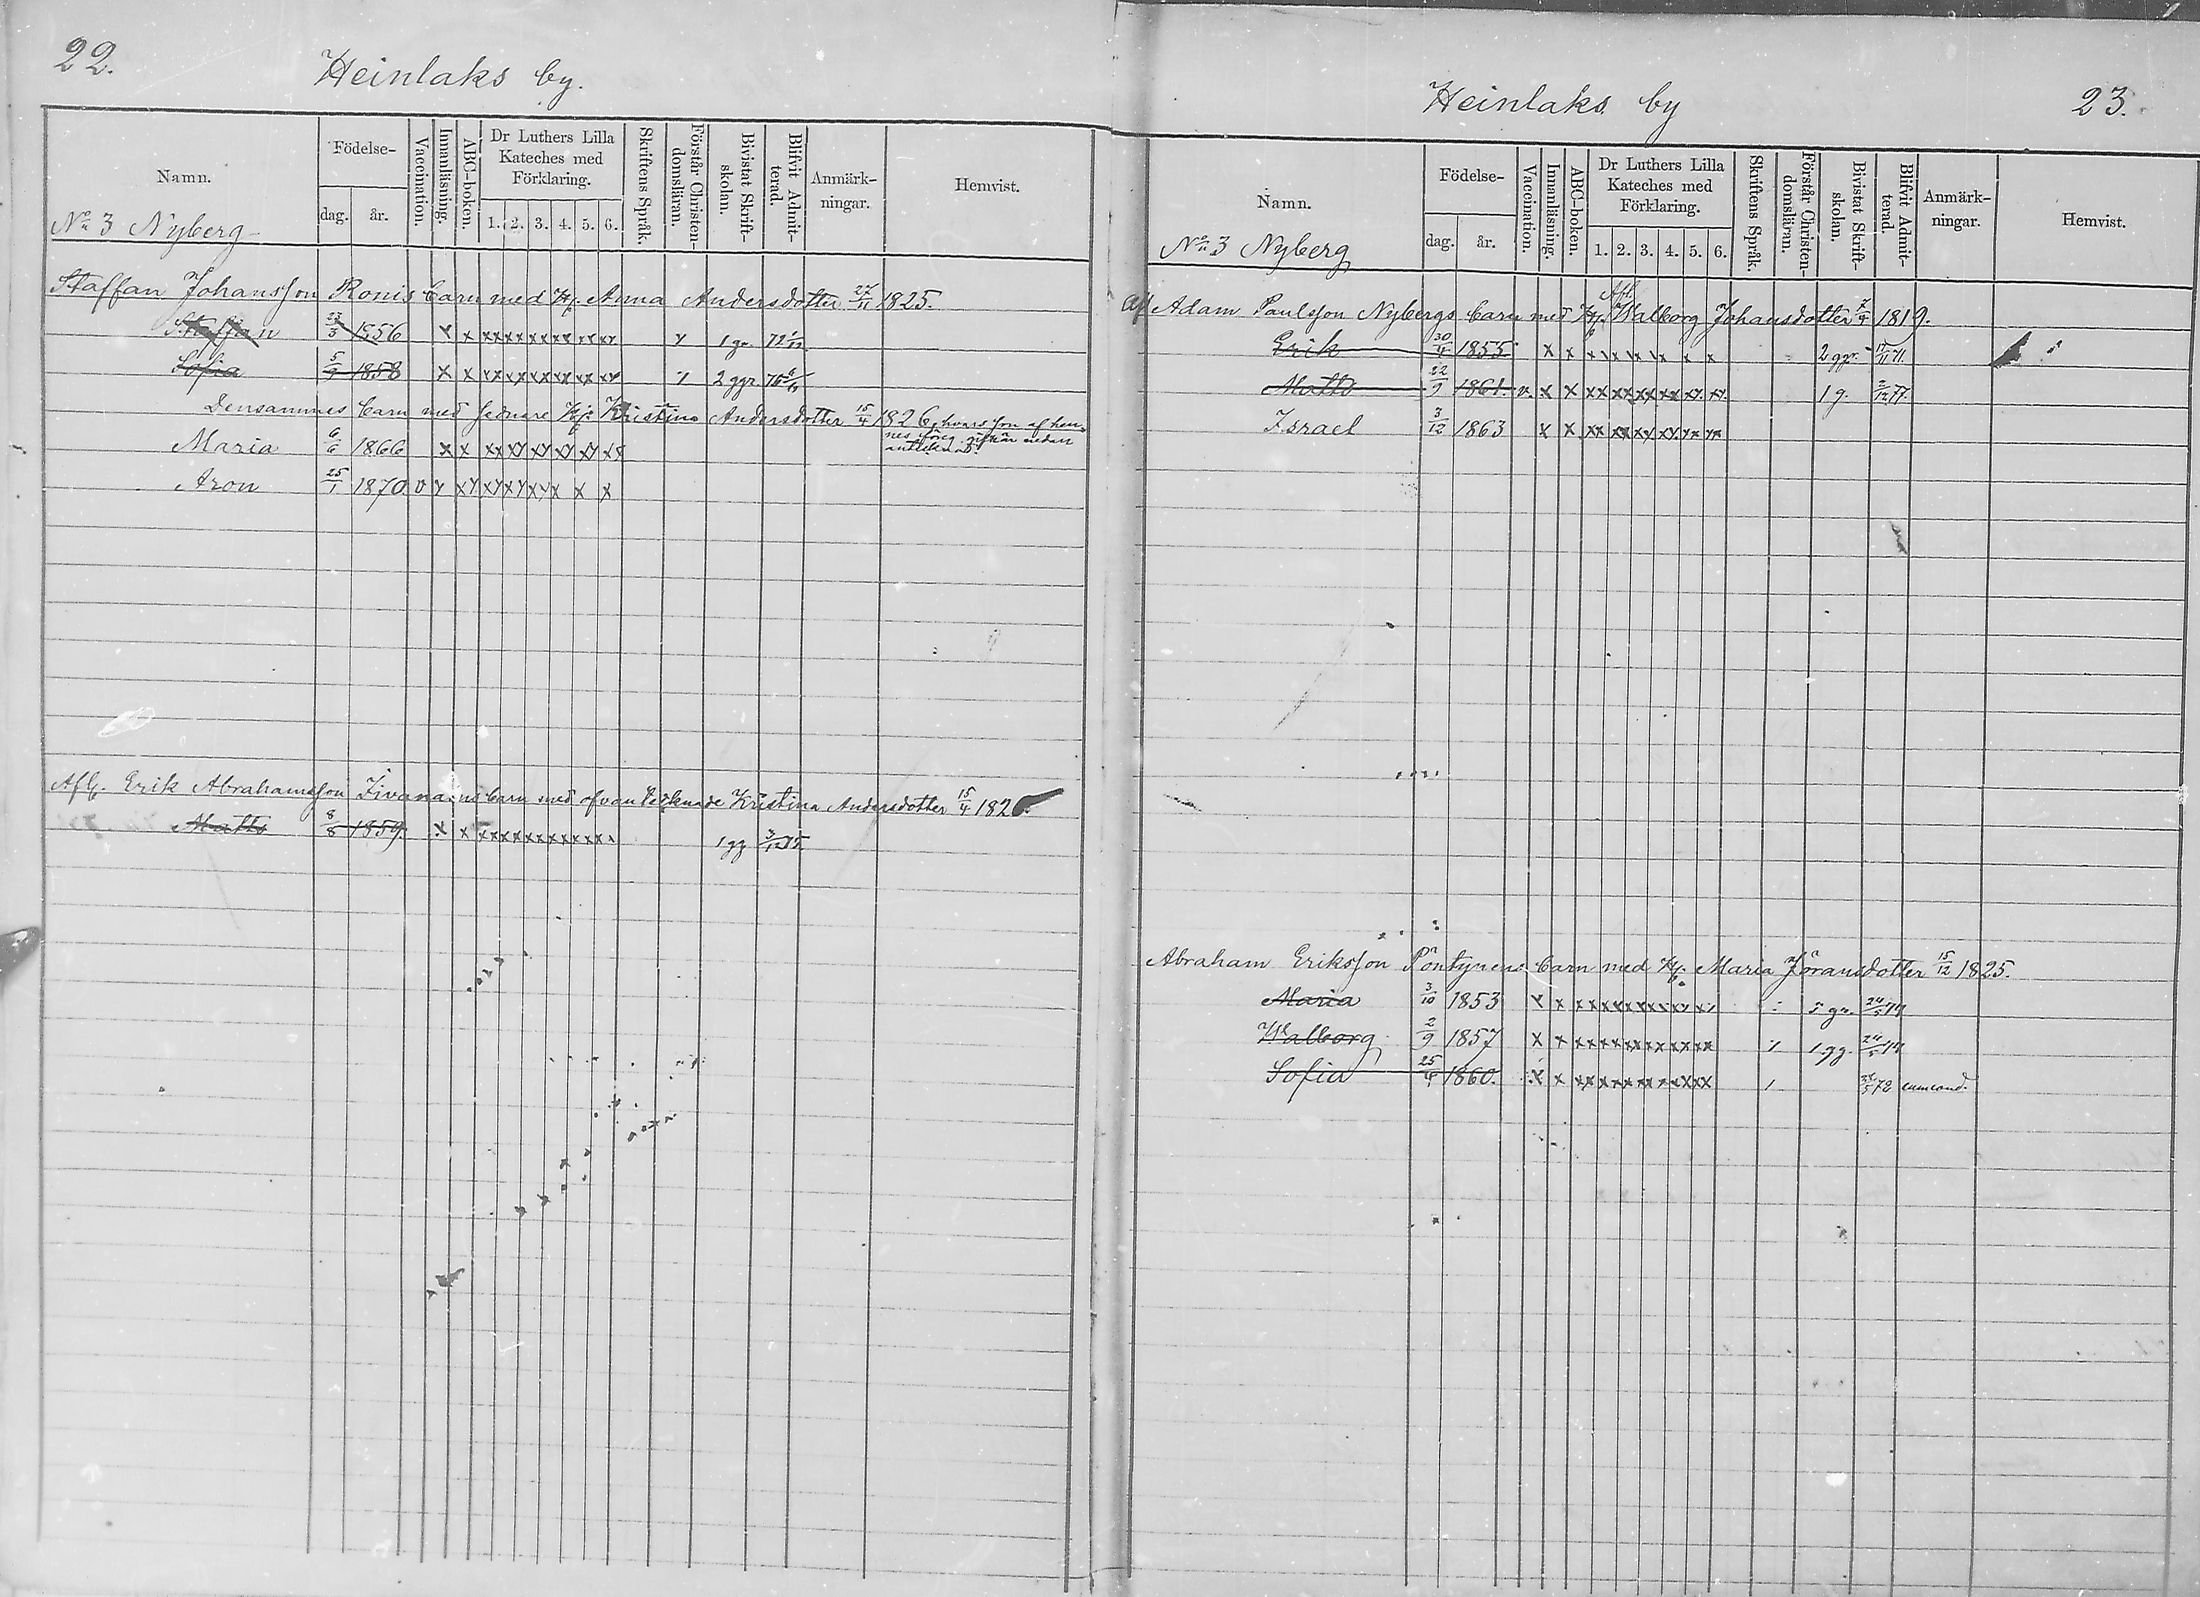 22.
Heinlaks by.
Namn.
Födelse-
dag.
år.
Vaccination.
Innanläsning.
ABC-boken.
Dr Luthers Lilla
Kateches med
Förklaring.
1. 2. 3. 4. 5. 6.
Skriftens Språk.
Förstår Christen-
domsläran.
Bivistat Skrift-
skolan.
Blifvit Admit-
terad.
Anmärk-
ningar.
Hemvist.
No 3 Nyberg
Staffan Johansson Ronis barn med Hu. Anna Andersdotter 27/11 1825.
Staffan 23/3 1856 x x xx xx xx xx xx xx 1 gr.
Sofia 5/9 1858 x x xx xx xx xx xx xx 2 ggr.
Densammes barn med senare Hu. Kristina Andersdotter 15/4 1826, hvars son af hen-
nes föreg. gifte är nedan
antecknad.
Maria 6/6 1866 x x xx xx xx xx xx xx
Aron 25/1 1870 v x xx xx xx xx x x x
Afl. Erik Abrahamsson barn med ofvan tecknade Kristina Andersdotter 15/4 182
Matts 8/8 1859. x x xx xx xx xx xx x 1 gg 3/12
Heinlaks by
23.
Namn.
Födelse-
dag.
år.
Vaccination.
Innanläsning.
ABC-boken.
Dr Luthers Lilla
Kateches med
Förklaring.
1. 2. 3. 4. 5. 6.
Skriftens Språk.
Förstår Christen-
domsläran.
Bivistat Skrift-
skolan.
Blifvit Admit-
terad.
Anmärk-
ningar.
Hemvist.
No 3 Nyberg
Afl.
Af Adam Paulsson Nybergs barn med Hu. Walborg Johansdotter 7/9 1819.
Erik 30/4 1855 x x x x x x x x 2 ggr.
Matts 22/9 1861. v. x x xx xx xx xx xx xx 1 g. 2/12 77.
Israel 3/12 1863 x x xx xx xx xx xx xx
Abraham Eriksson Pöntynens barn med Hu. Maria Jöransdotter 15/12 1825.
Maria 3/10 1853 x x xx xx xx xx xx xx gr. 24/5 74
Walborg 2/9 1857 x x xx xx xx xx xx xx 1 gg. 24/5 74
Sofia 25/4 1860. x x xx xx xx xx xx xx